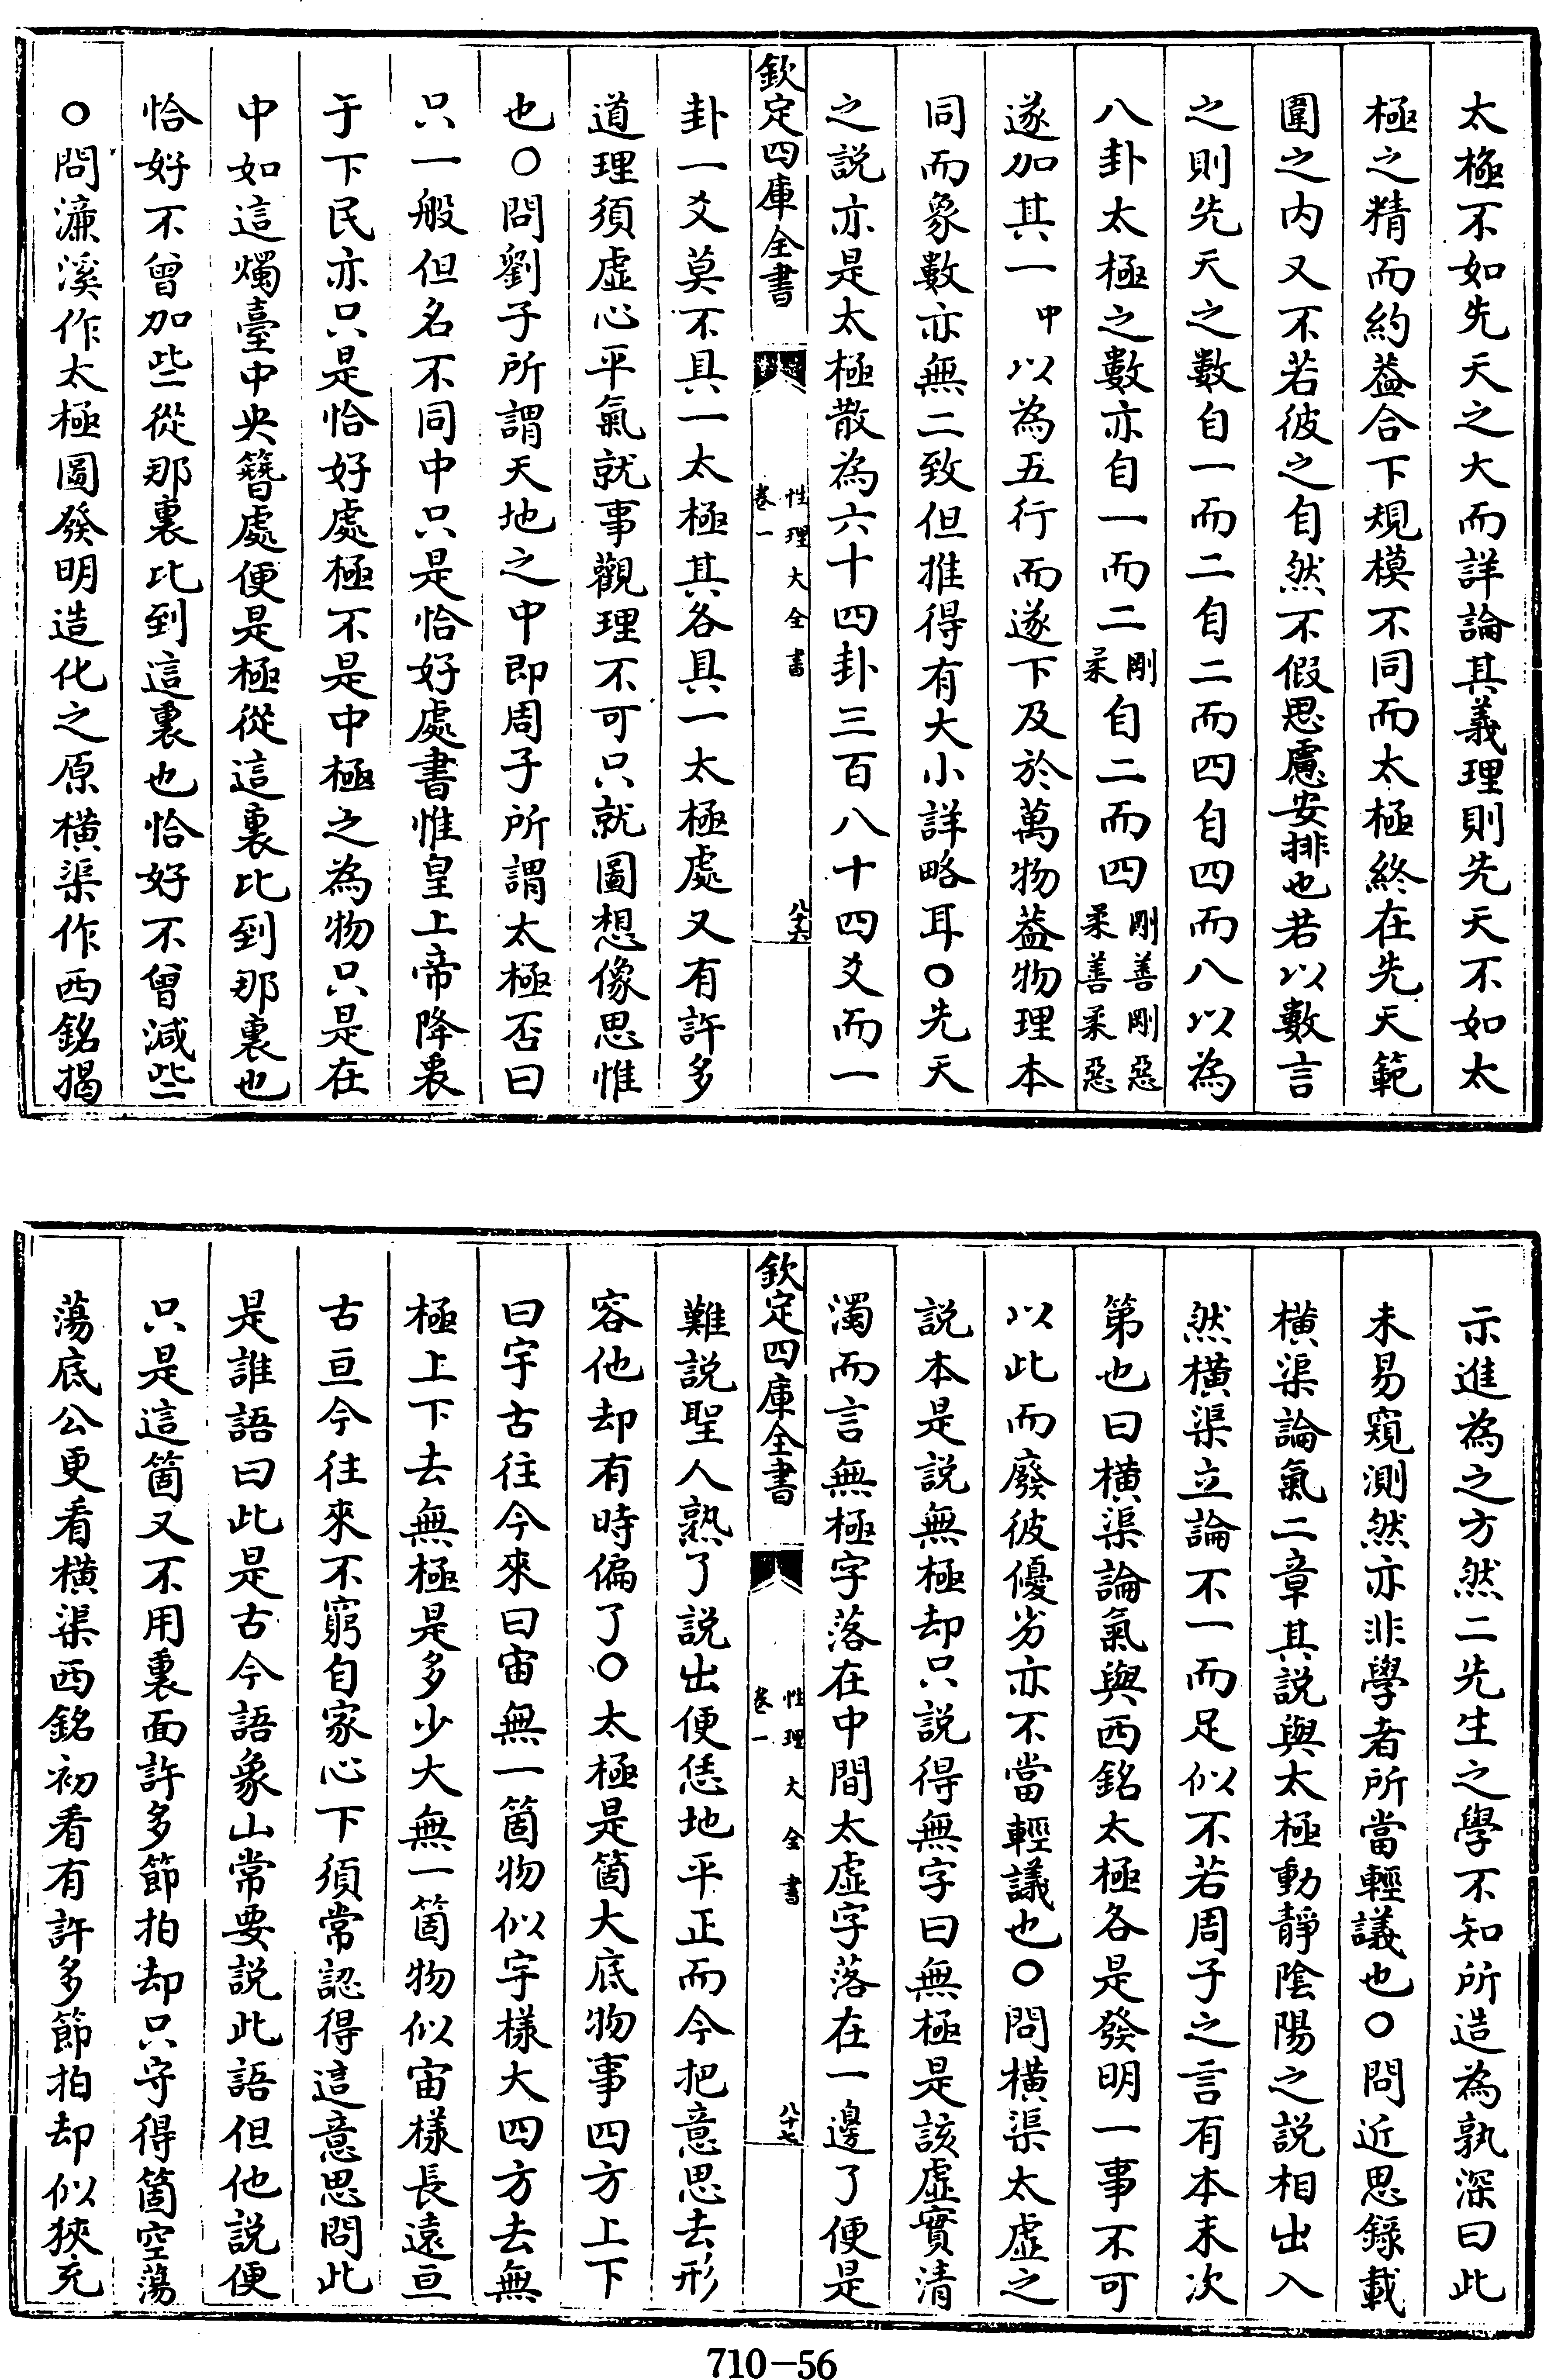 太極不如先天之大而詳論其義理則先天不如太
極之精而約蓋合下規模不同而太極終在先天範
圍之内又不若彼之自然不假思慮安排也若以數言
之則先天之數自一而二自二而四自四而八以為
八卦太極之數亦自一而二剛柔自二而四剛善剛惡柔善柔惡
遂加其一中以為五行而遂下及於萬物蓋物理本
同而象數亦無二致但推得有大小詳略耳○先天
之説亦是太極散為六十四卦三百八十四爻而一
欽定四庫全書 性理大全書 卷一 八十六
卦一爻莫不具一太極其各具一太極處又有許多
道理須虛心平氣就事觀理不可只就圖想像思惟
也○問劉子所謂天地之中即周子所謂太極否曰
只一般但名不同中只是恰好處書惟皇上帝降衷
于下民亦只是恰好處極不是中極之為物只是在
中如這燭臺中央簪處便是極從這裏比到那裏也
恰好不曾加些從那裏比到這裏也恰好不曾減些
○問濂溪作太極圖發明造化之原横渠作西銘揭
示進為之方然二先生之學不知所造為孰深曰此
未易窺測然亦非學者所當輕議也○問近思錄載
横渠論氣二章其説與太極動靜陰陽之説相出入
然横渠立論不一而足似不若周子之言有本末次
第也曰横渠論氣與西銘太極各是發明一事不可
以此而廢彼優劣亦不當輕議也○問横渠太虛之
説本是説無極却只説得無字曰無極是該虛實清
濁而言無極字落在中間太虛字落在一邊了便是
欽定四庫全書 性理大全書 卷一 八十七
難説聖人熟了説出便恁地平正而今把意思去形
容他却有時偏了○太極是箇大底物事四方上下
曰宇古往今來曰宙無一箇物似宇樣大四方去無
極上下去無極是多少大無一箇物似宙樣長遠亘
古亘今往來不窮自家心下須常認得這意思問此
是誰語曰此是古今語象山常要説此語但他説便
只是這箇又不用裏面許多節拍却只守得箇空蕩
蕩底公更看横渠西銘初看有許多節拍却似狹充
710-56